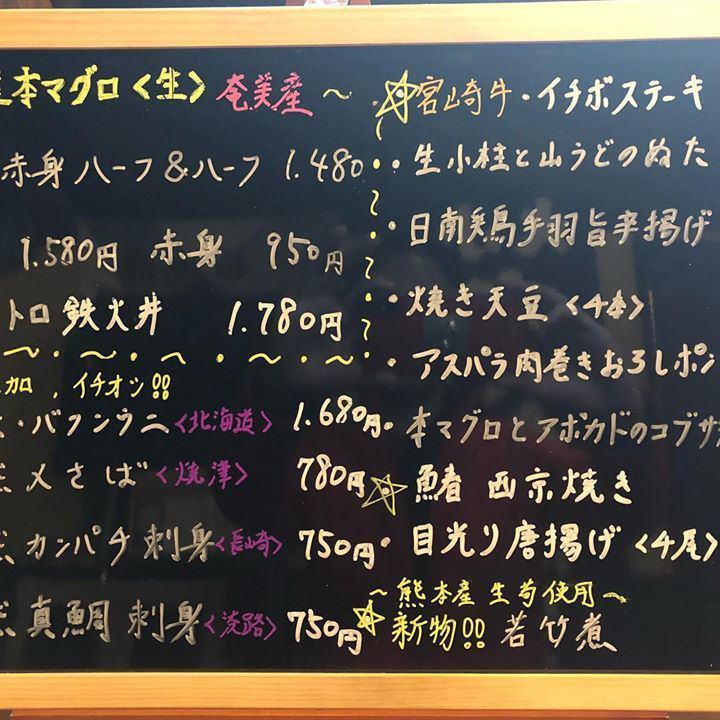 本マグロ〈生〉奄美産〜
赤身 ハーフ&ハーフ 1.480
1.580円 赤身 950円
トロ 鉄火丼 1.780円
カロ,イチオシ!!
・バフンウニ〈北海道〉 1.680円
〆さば〈焼津〉 780円
カンパチ刺身〈長崎〉 750円
真鯛 刺身〈淡路〉 750円
☆宮崎牛・イチボステーキ
・生小柱と山うどのぬた
・日南鶏手羽旨辛揚げ
・焼き天豆〈4本〉
・アスパラ肉巻きおろしポン
・本マグロとアボカドのコブサ
☆鰆 西京焼き
・目光り唐揚げ〈4尾〉
〜熊本産 生筍使用〜
☆新物!! 若竹煮